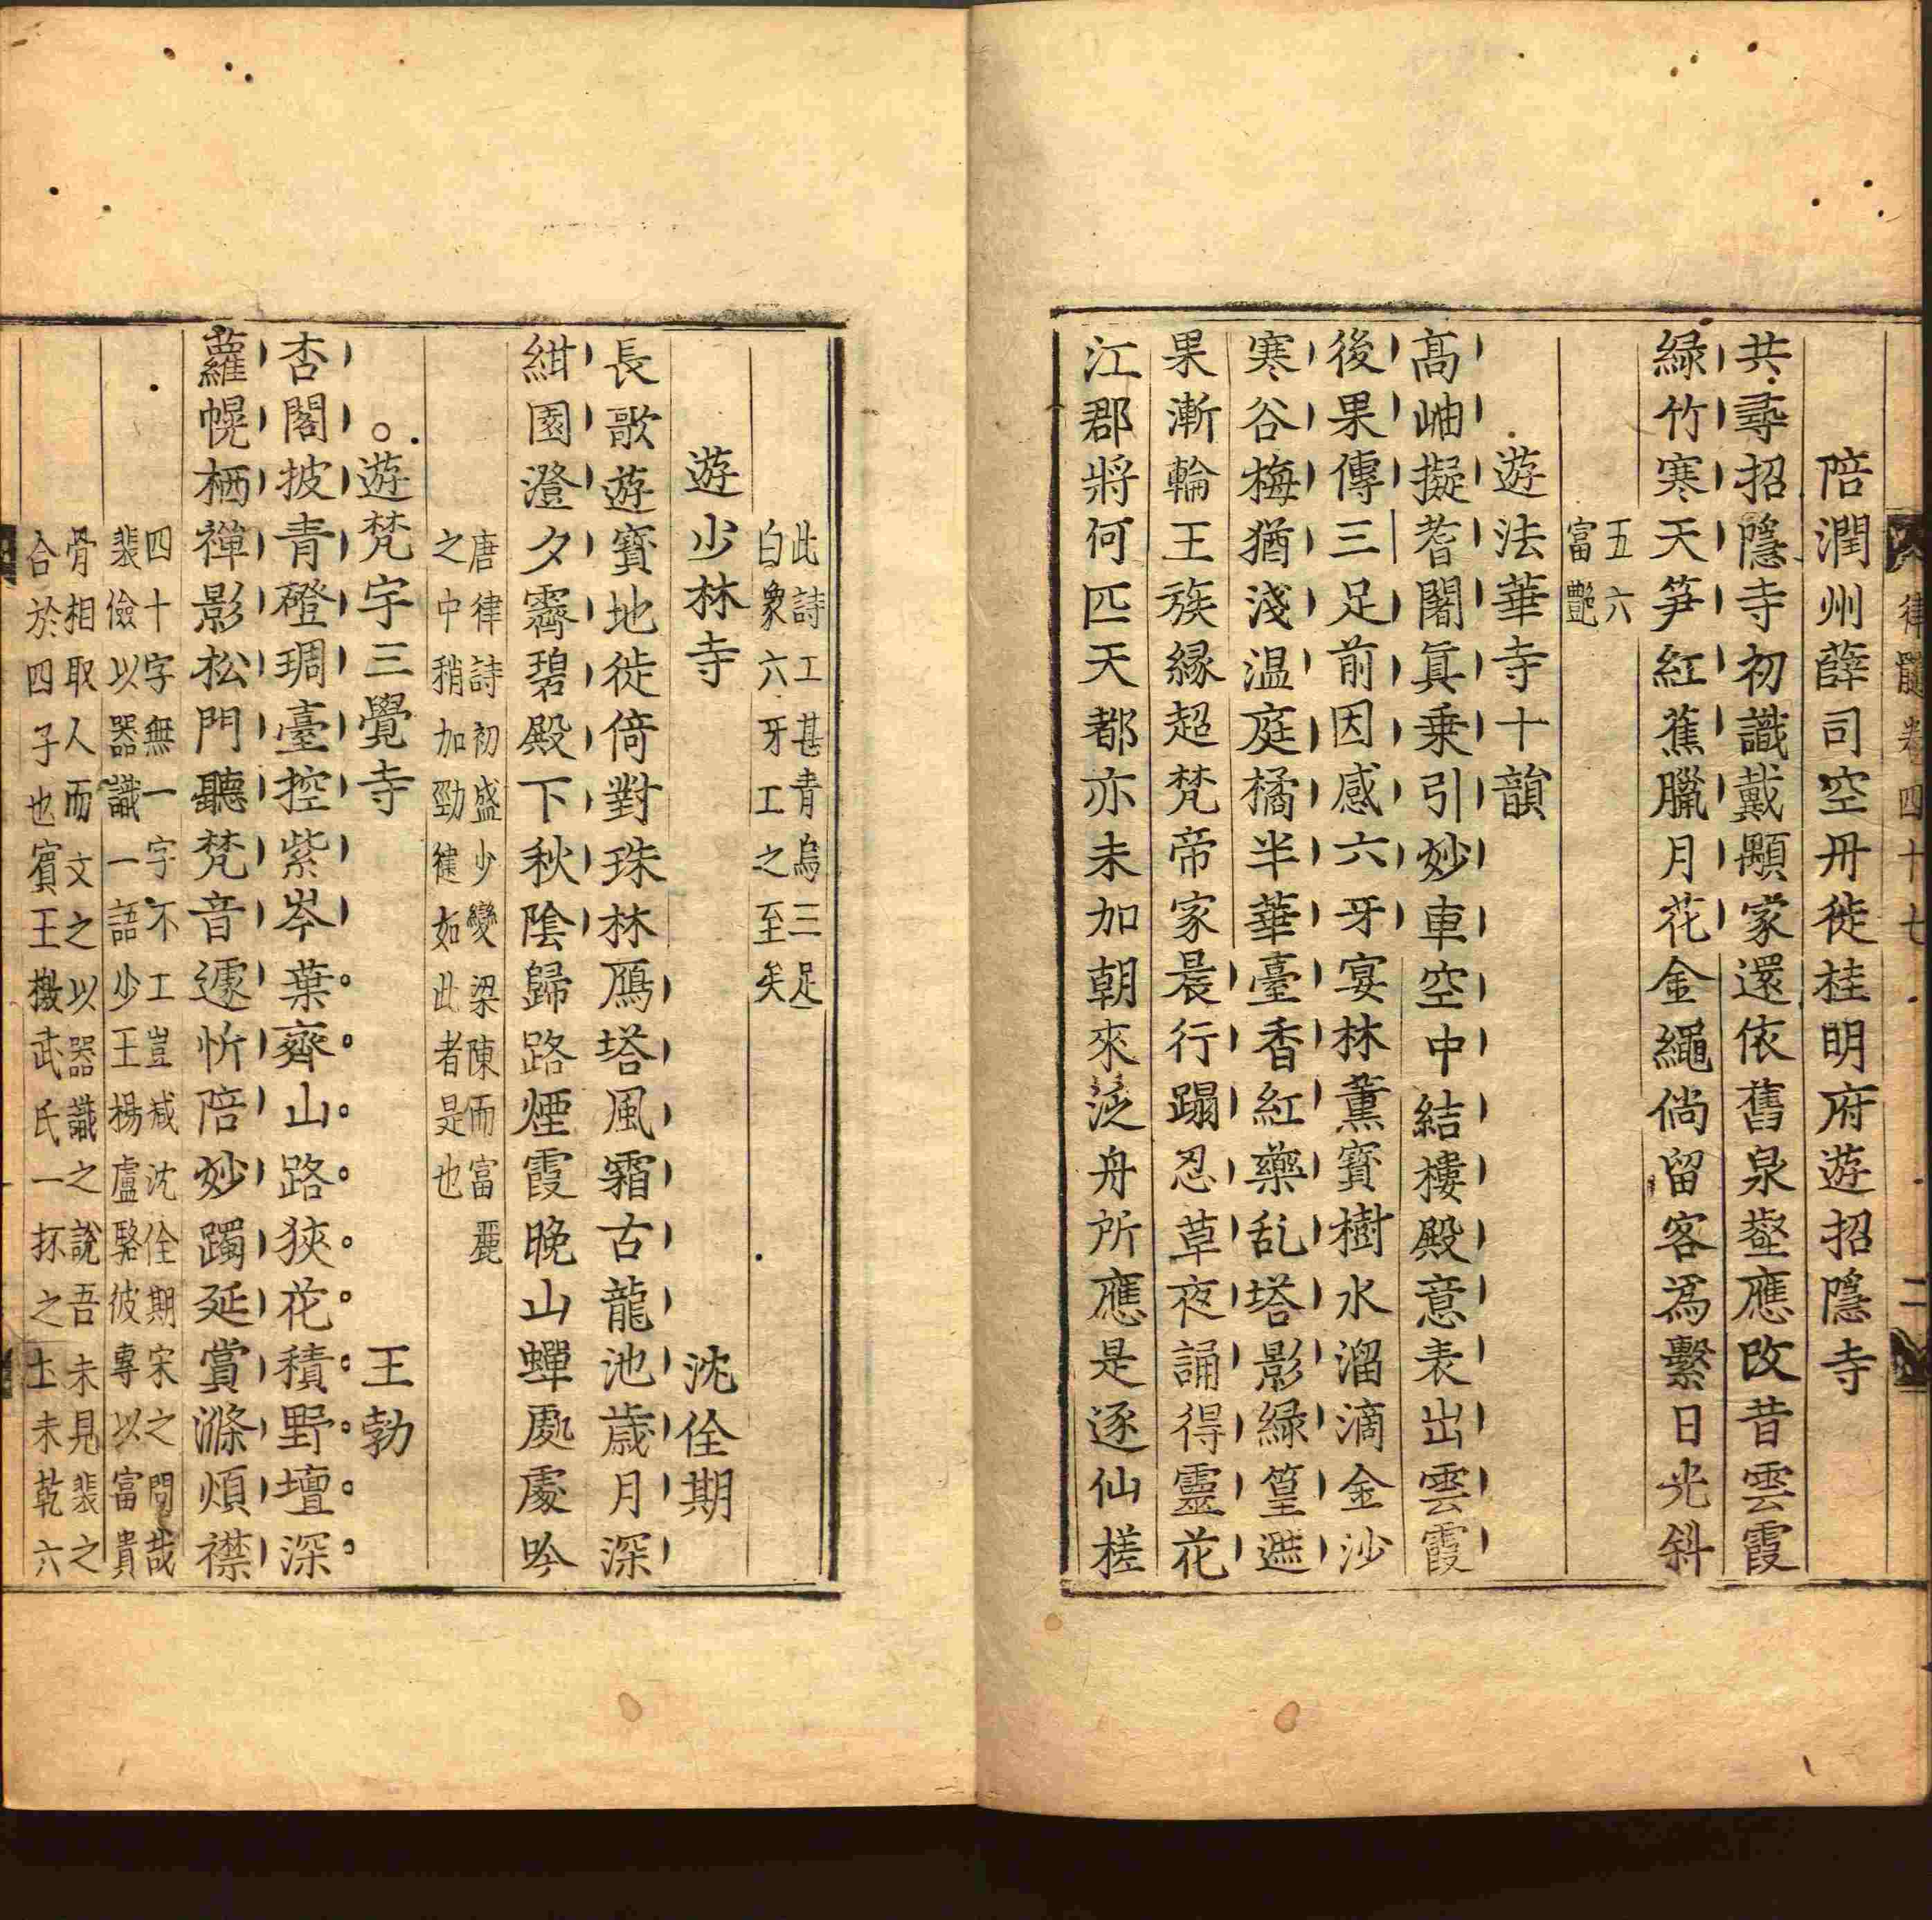 律髓卷四十七 二
陪潤州薛司空丹徒桂明府遊招隱寺
共尋招隱寺初識戴顒家還依舊泉壑應改昔雲霞
緑竹寒天笋紅蕉臘月花金繩倘留客為繫日光斜
五六
富艷
遊法華寺十韻
高岫擬耆闍真乗引妙車空中結樓殿意表出雲霞
後果傳三足前因感六牙宴林薫寶樹水溜滴金沙
寒谷梅猶淺温庭橘半華臺香紅藥乱塔影緑篁遮
果漸輪王族縁超梵帝家晨行蹋忍草夜誦得靈花
江郡將何匹天都亦未加朝來泛舟所應是逐仙槎
此詩工甚青烏三足
白象六牙工之至矣
遊少林寺 沈佺期
長歌遊寶地徙倚對珠林鴈塔風霜古龍池歳月深
紺園澄夕霽碧殿下秋陰歸路煙霞晚山蟬處處吟
唐律詩初盛少變梁陳而富麗
之中稍加勁健如此者是也
。遊梵宇三覺寺 王勃
杏閣披青磴琱臺控紫岑葉齊山路狹花積野壇深
蘿幌栖禪影松門聽梵音遽忻陪妙躅延賞滌煩襟
四十字無一字不工豈减沈佺期宋之問哉
裴儉以器識一語少王楊盧駱彼專以富貴
骨相取人而文之以器識之說吾未見裴之
合於四子也賓王檄武氏一抔之土未乾六